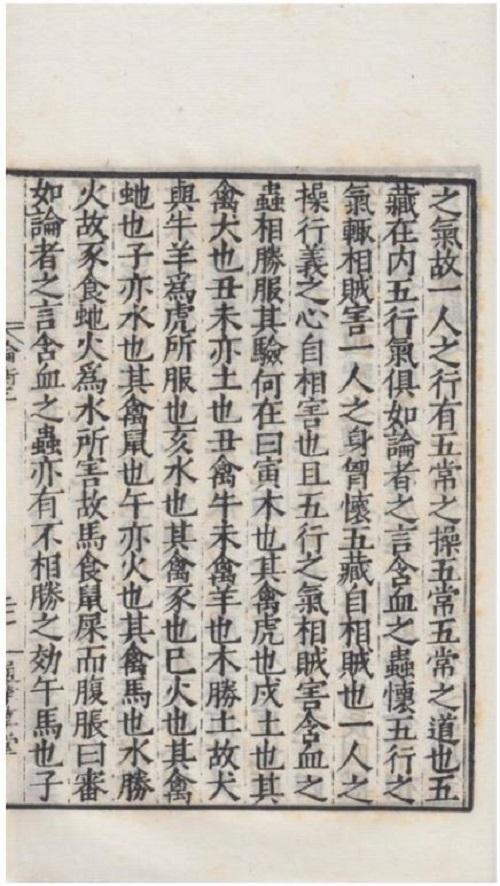 之氣故一人之行有五常之操五常五常之道也五
藏在内五行氣俱如論者之言含血之蟲懷五行之
氣輒相賊害一人之身胷懷五藏自相賊也一人之
操行義之心自相害也且五行之氣相賊害含血之
蟲相勝服其驗何在曰寅木也其禽虎也戌土也其
禽犬也丑未亦土也丑禽牛未禽羊也木勝土故犬
與牛羊爲虎所服也亥水也其禽豕也巳火也其禽
虵也子亦水也其禽鼠也午亦火也其禽馬也水勝
火故豕食虵火爲水所害故馬食鼠屎而腹脹曰審
如論者之言含血之蟲亦有不相勝之効午馬也子